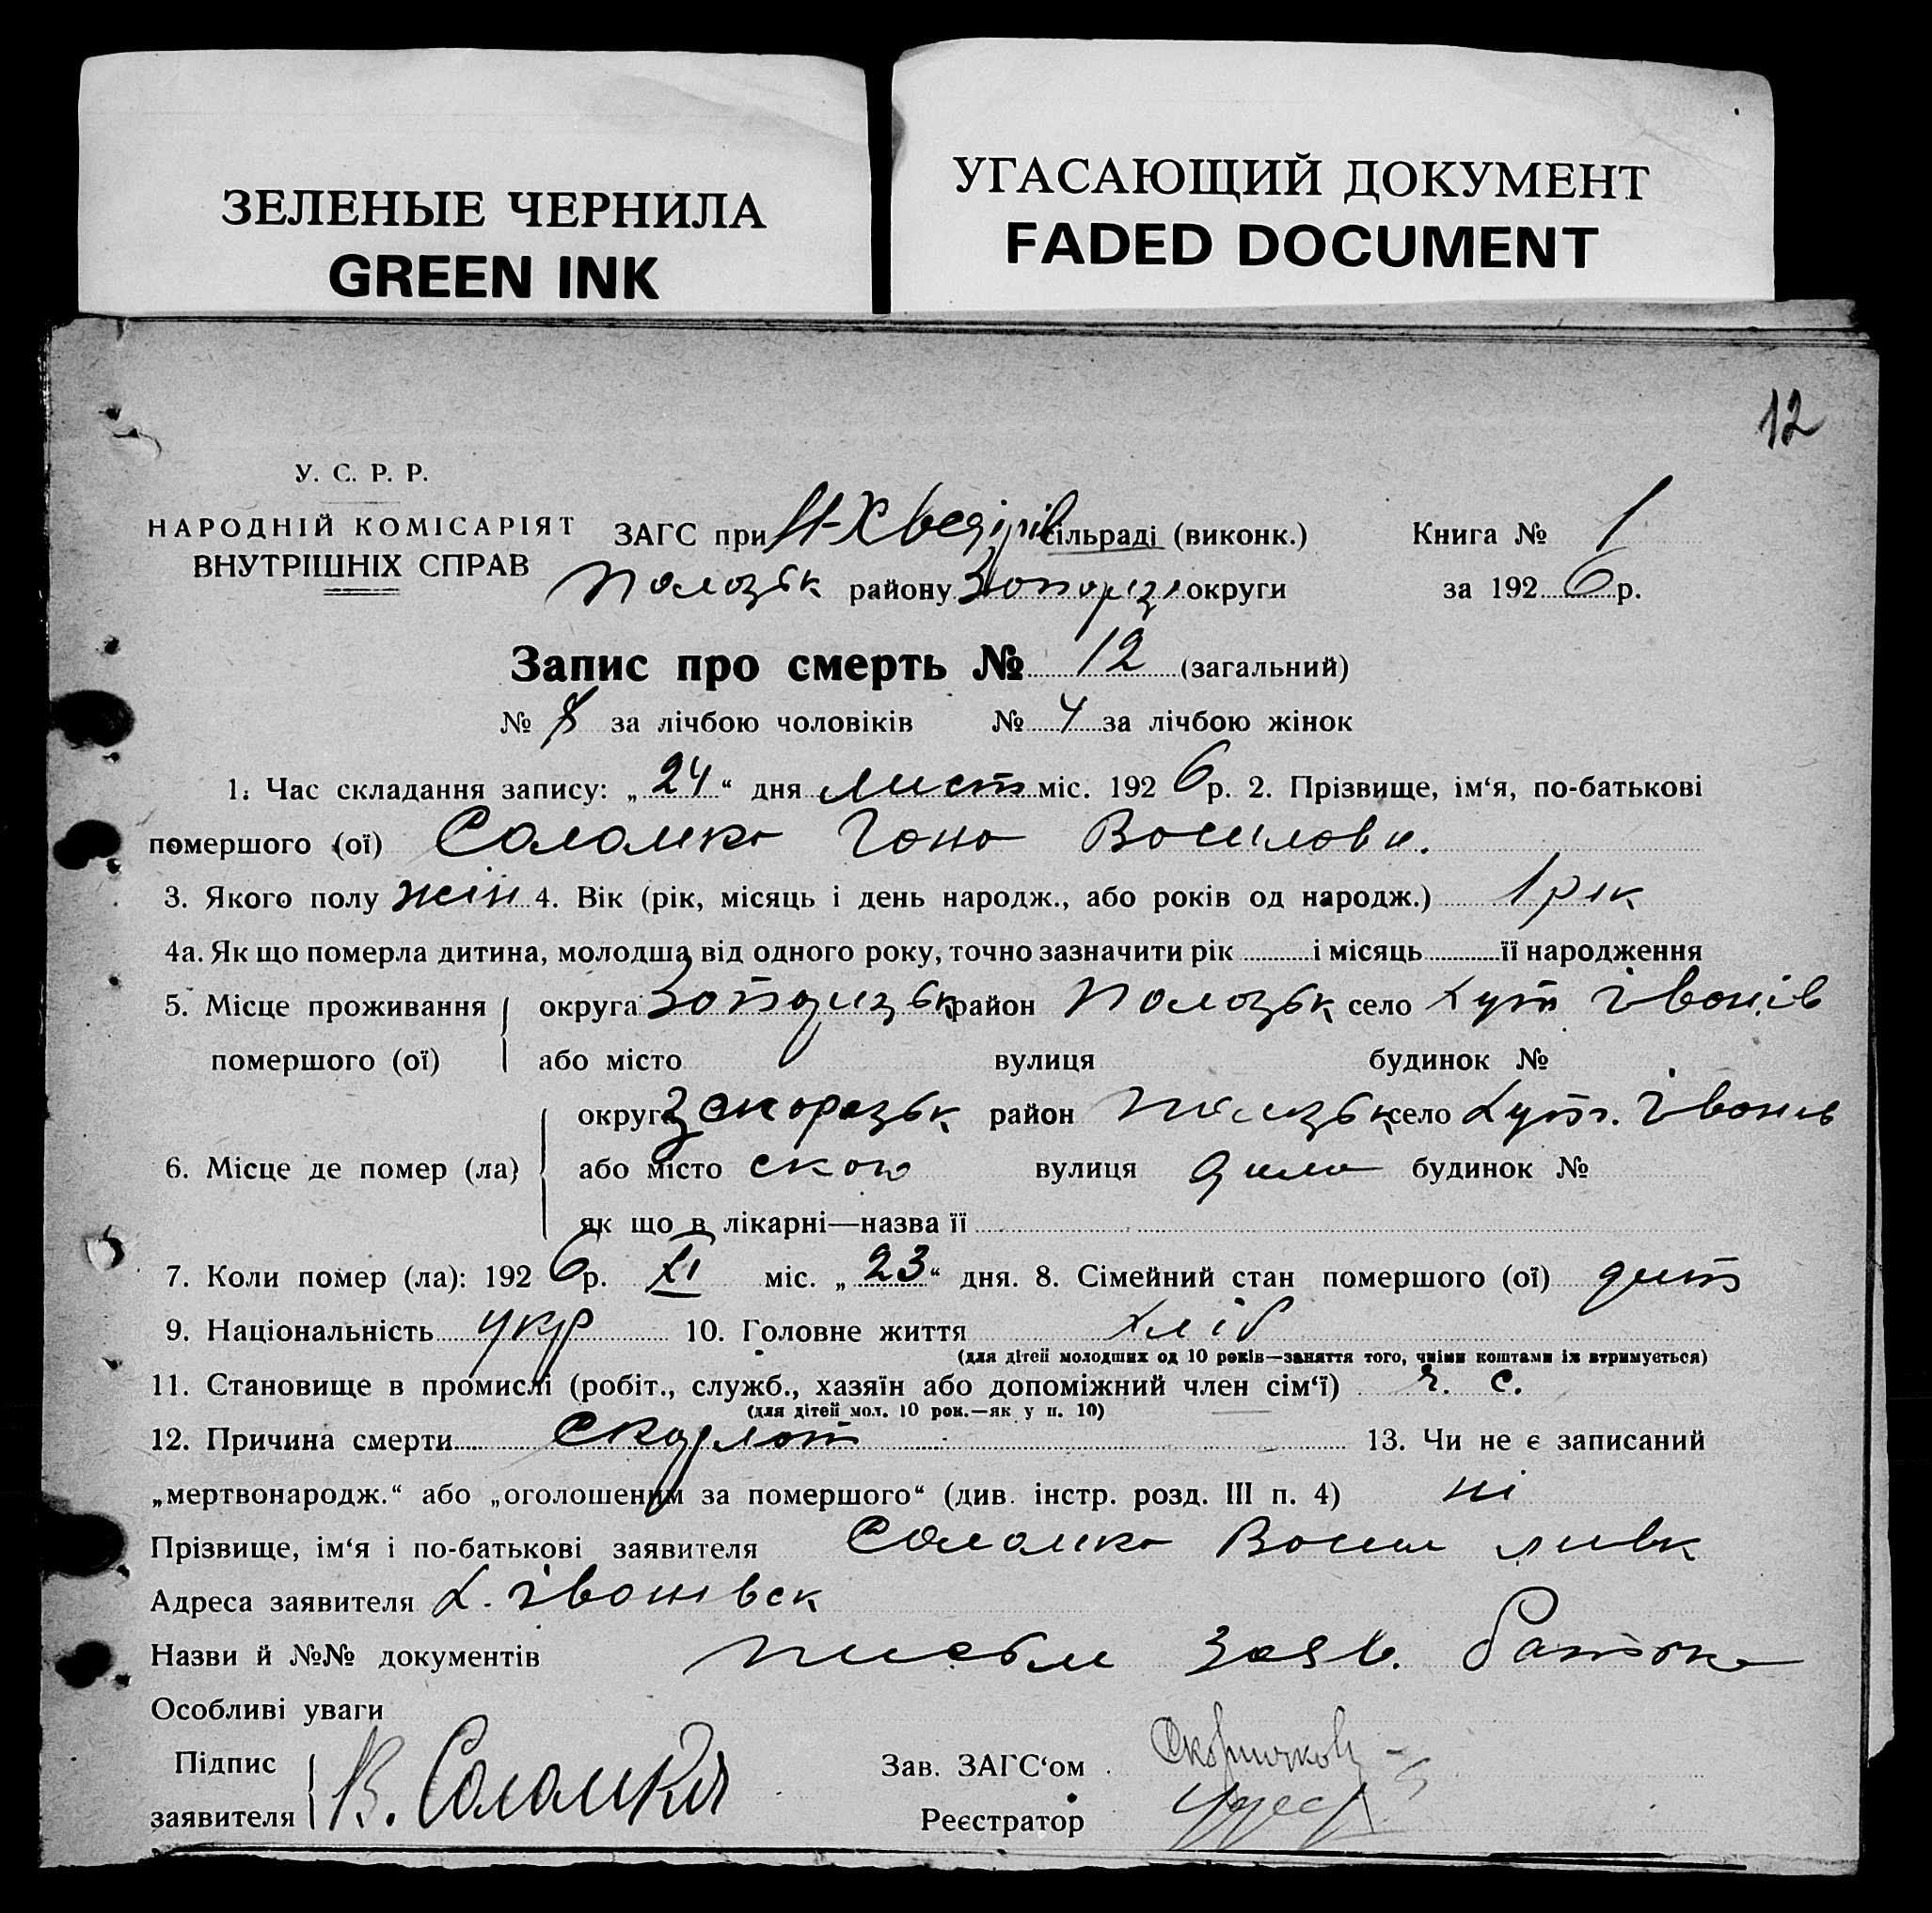 ЗЕЛЕНЫЕ ЧЕРНИЛА
GREEN INK
УГАСАЮЩИЙ ДОКУМЕНТ
FADED DOCUMENT
12
У. С. Р. Р.
НАРОДНІЙ КОМІСАРІЯТ
ВНУТРІШНІХ СПРАВ
ЗАГС при Н-Хведірів сільраді (виконк.)
Пологзьк району Запоріз округи
Книга № 1
за 1926 р.
Запис про смерть № 12 (загальний)
№ за лічбою чоловіків № 4 за лічбою жінок
1. Час складання запису: „24“ дня лист міс. 1926 р. 2. Прізвище, ім‘я, по-батькові
помершого (ої) Саломка Гана Василовн.
3. Якого полу жін 4. Вік (рік, місяць і день народж., або років од народж.) 1 рік
4а. Як що померла дитина, молодша від одного року, точно зазначити рік і місяць її народження
5. Місце проживання помершого (ої) округа Запорізьк район село Хут Іванів
або місто вулиця будинок №
6. Місце де помер (ла) округа район село Хут. Іванів
або місто вулиця будинок №
як що в лікарні—назва її
7. Коли помер (ла): 1926 р. XI міс. „23“ дня. 8. Сімейний стан помершого (ої) дит
9. Національність укр 10. Головне життя хліб
(для дітей молодших од 10 років—заняття того, чиїми коштами їх втримується)
11. Становище в промислі (робіт., служб., хазяїн або допоміжний член сім‘ї) г. с.
(для дітей мол. 10 рок.—як у п. 10)
12. Причина смерти Скарлат 13. Чи не є записаний
„мертвонародж.“ або „оголошеним за помершого“ (див. інстр. розд. III п. 4) ні
Прізвище, ім‘я і по-батькові заявителя Саломка Васил
Адреса заявителя Х. Іванівськ
Назви й №№ документів заяв. батька
Особливі уваги
Підпис заявителя В. Саломка
Зав. ЗАГС‘ом
Реєстратор